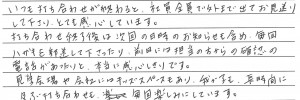 いつも打ち合わせが終わると、社員全員で外まで出てお見送り
して下さり、とても感心しています。
打ち合わせ終了後は次回の日時のお知らせを含め、毎回
ハガキを郵送して下さったり、前日には担当の方からの確認の
電話があったりと、本当に感心しきりです。
見学会場や会社にはキッズスペースもあり、我が子も、長時間に
及ぶ打ち合わせも、毎回楽しみにしています。